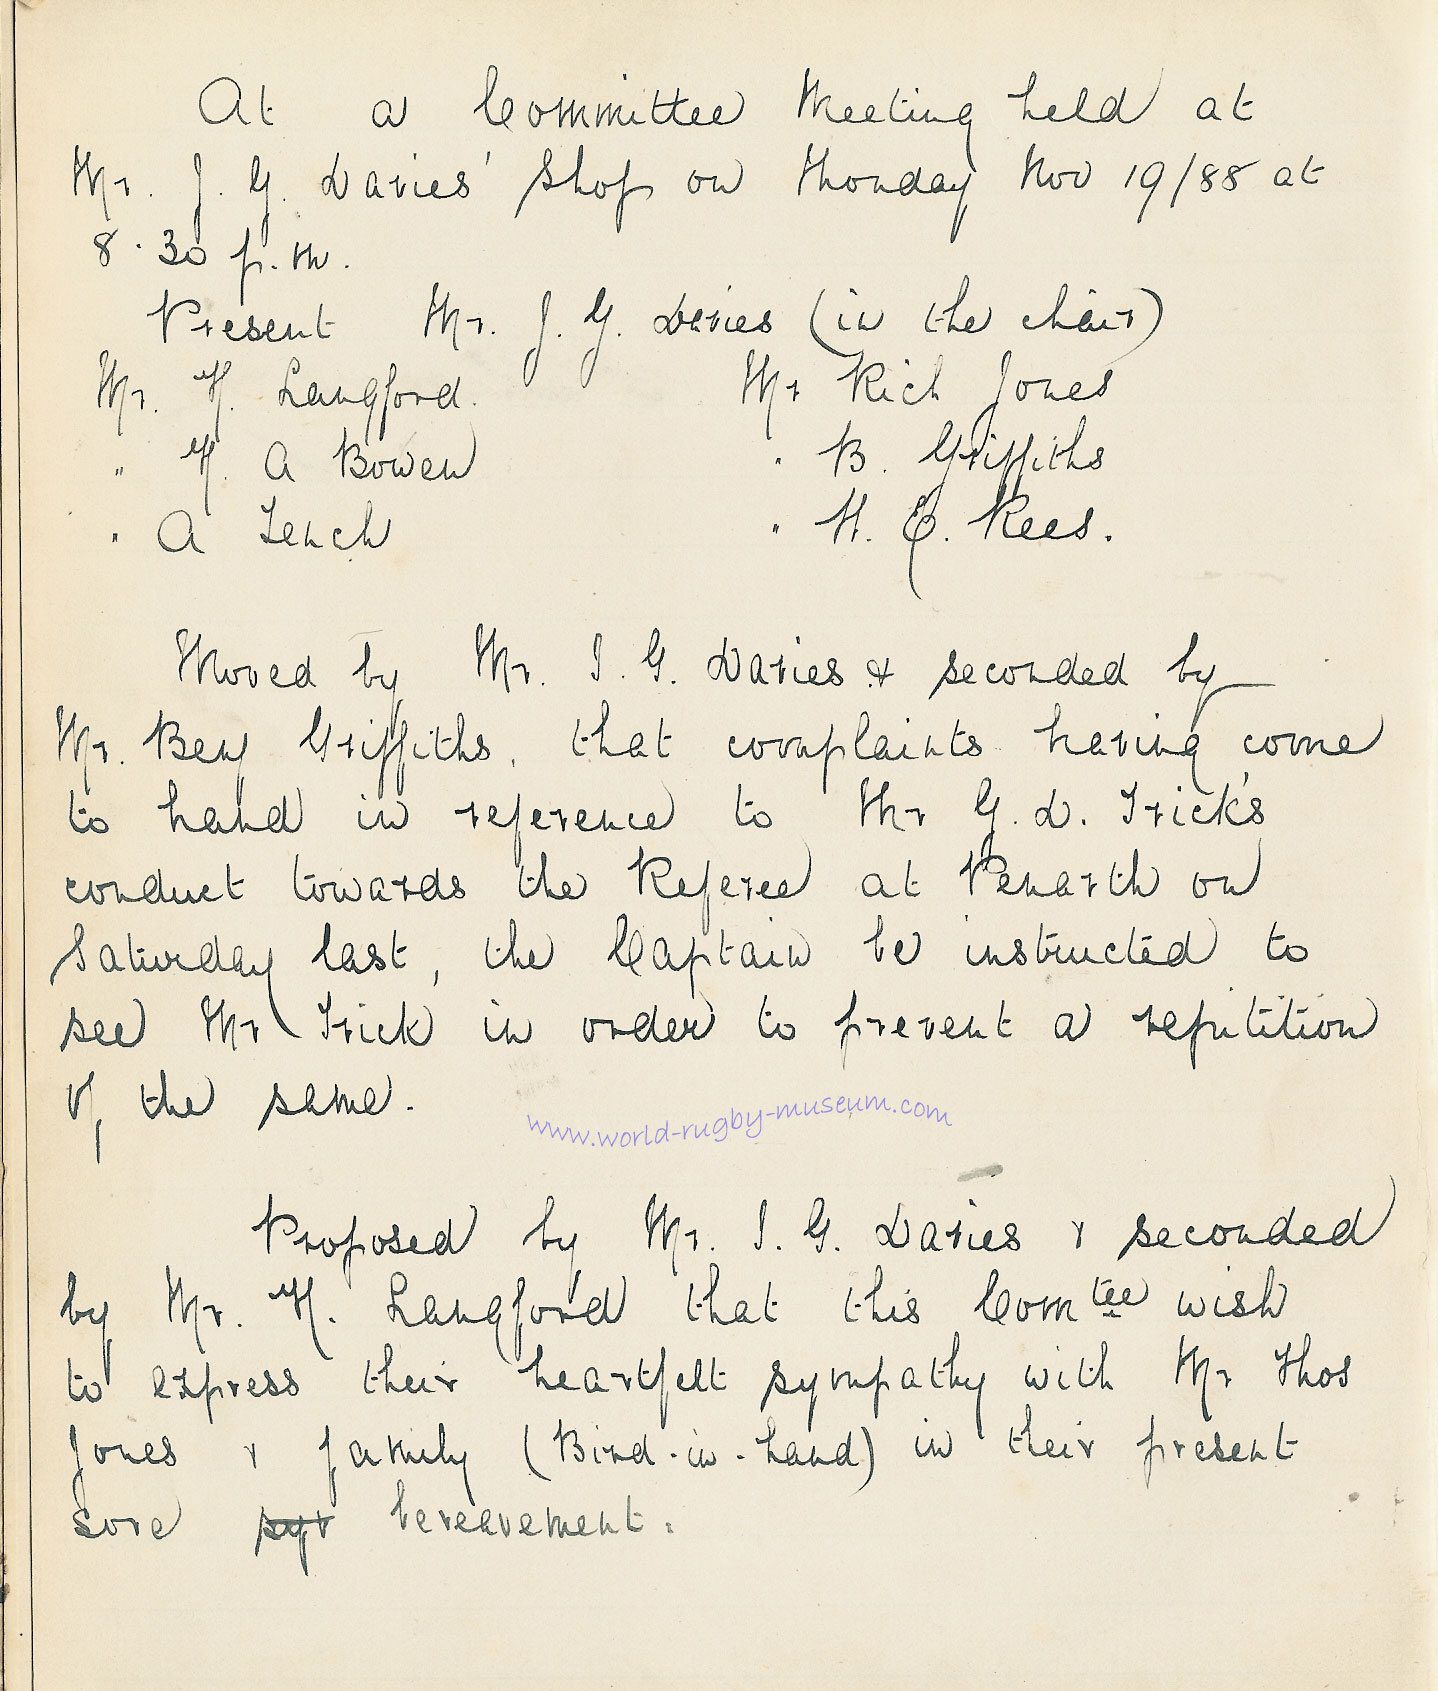 At a Committee Meeting held at
Mr. J. G. Davies' Shop on Monday Nov 19/88 at
8.30 p.m.
Present Mr. J. G. Davies (in the chair)
Mr. H. Langford. Mr Rich Jones
" H. A Bowen " B. Griffiths
" A Tench " H. E. Rees.
Moved by Mr. J. G. Davies & seconded by
Mr. Benj Griffiths, that complaints having come
to hand in reference to Mr G. D. Trick's
conduct towards the Referee at Penarth on
Saturday last, the Captain be instructed to
see Mr Trick in order to prevent a repitition
of the same.
www.world-rugby-museum.com
Proposed by Mr. J. G. Davies & seconded
by Mr. H. Langford that this Comtee wish
to express their heartfelt sympathy with Mr Thos
Jones & family (Bird-in-hand) in their present
sore bereavement.